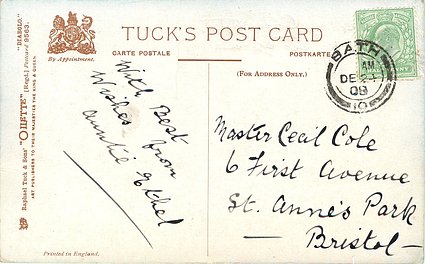 TUCK'S POST CARD
CARTE POSTALE
POSTKARTE
By Appointment.
(FOR ADDRESS ONLY.)
"DIABOLO."
"OILETTE" [Regd.] Postcard 9563.
Raphael Tuck & Sons'
ART PUBLISHERS TO THEIR MAJESTIES THE KING & QUEEN.
BATH
AM
DE 24
08
With Best
Wishes
from
Auntie Ethel
Master Cecil Cole
6 First Avenue
St. Anne's Park
Bristol
Printed in England.